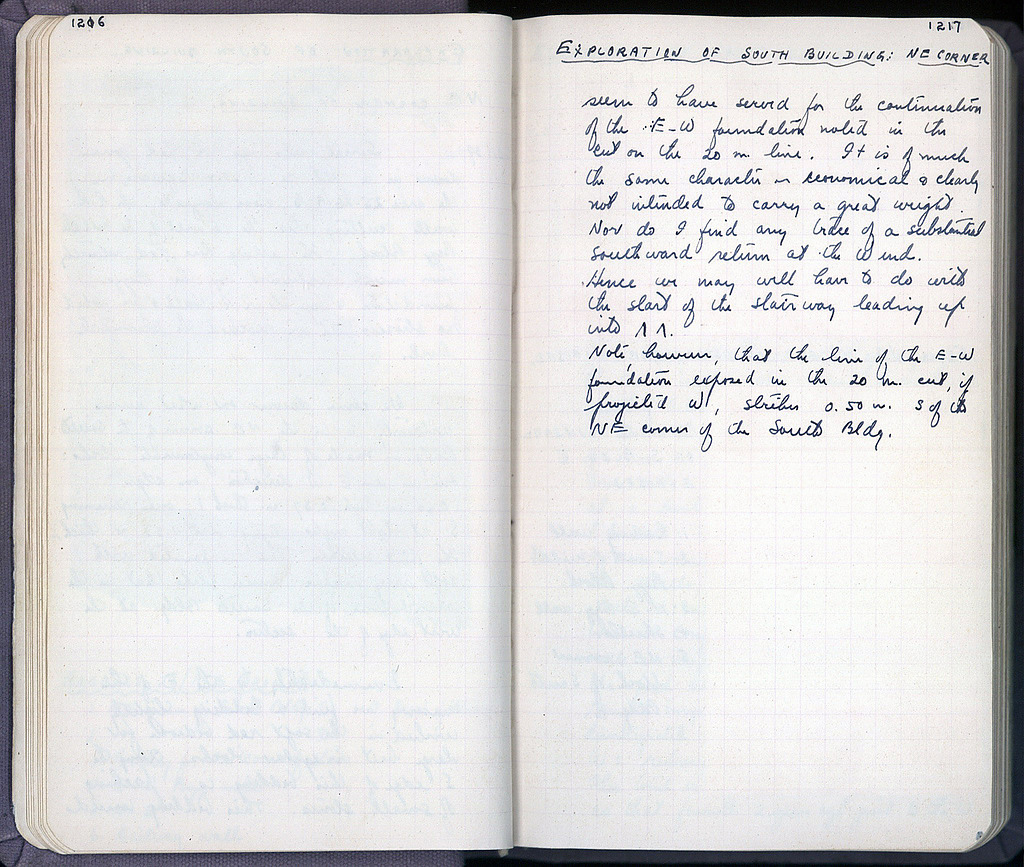 1206
1217
EXPLORATION OF SOUTH BUILDING: NE CORNER
seem to have served for the continuation
of the E-W foundation noted in the
cut on the 20 m line. It is of much
the same character - economical & clearly
not intended to carry a great weight.
Nor do I find any trace of a substantial
southward return at the W end.
Hence we may well have to do with
the start of the stairway leading up
into ΛΛ.
Note, however, that the line of the E-W
foundation exposed in the 20 m. cut, if
projected W, strikes 0.50 m. S of the
NE corner of the South Bldg.